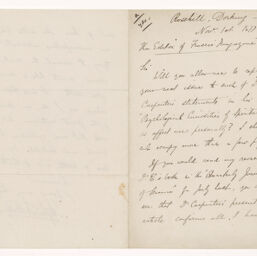 Rosehill, Dorking
Nov. 1st
The Editor of Fraser's Magazine
Sir
Will you allow me to
your next issue to such of
Carpenter's statements in his
"Psychological Curiosities of
as affect me personally? I
occupy more than a few
If you would send my
in the "Quarterly Journal
of Science" for July last, you
see that Dr Carpenter's present
article confirms all I have